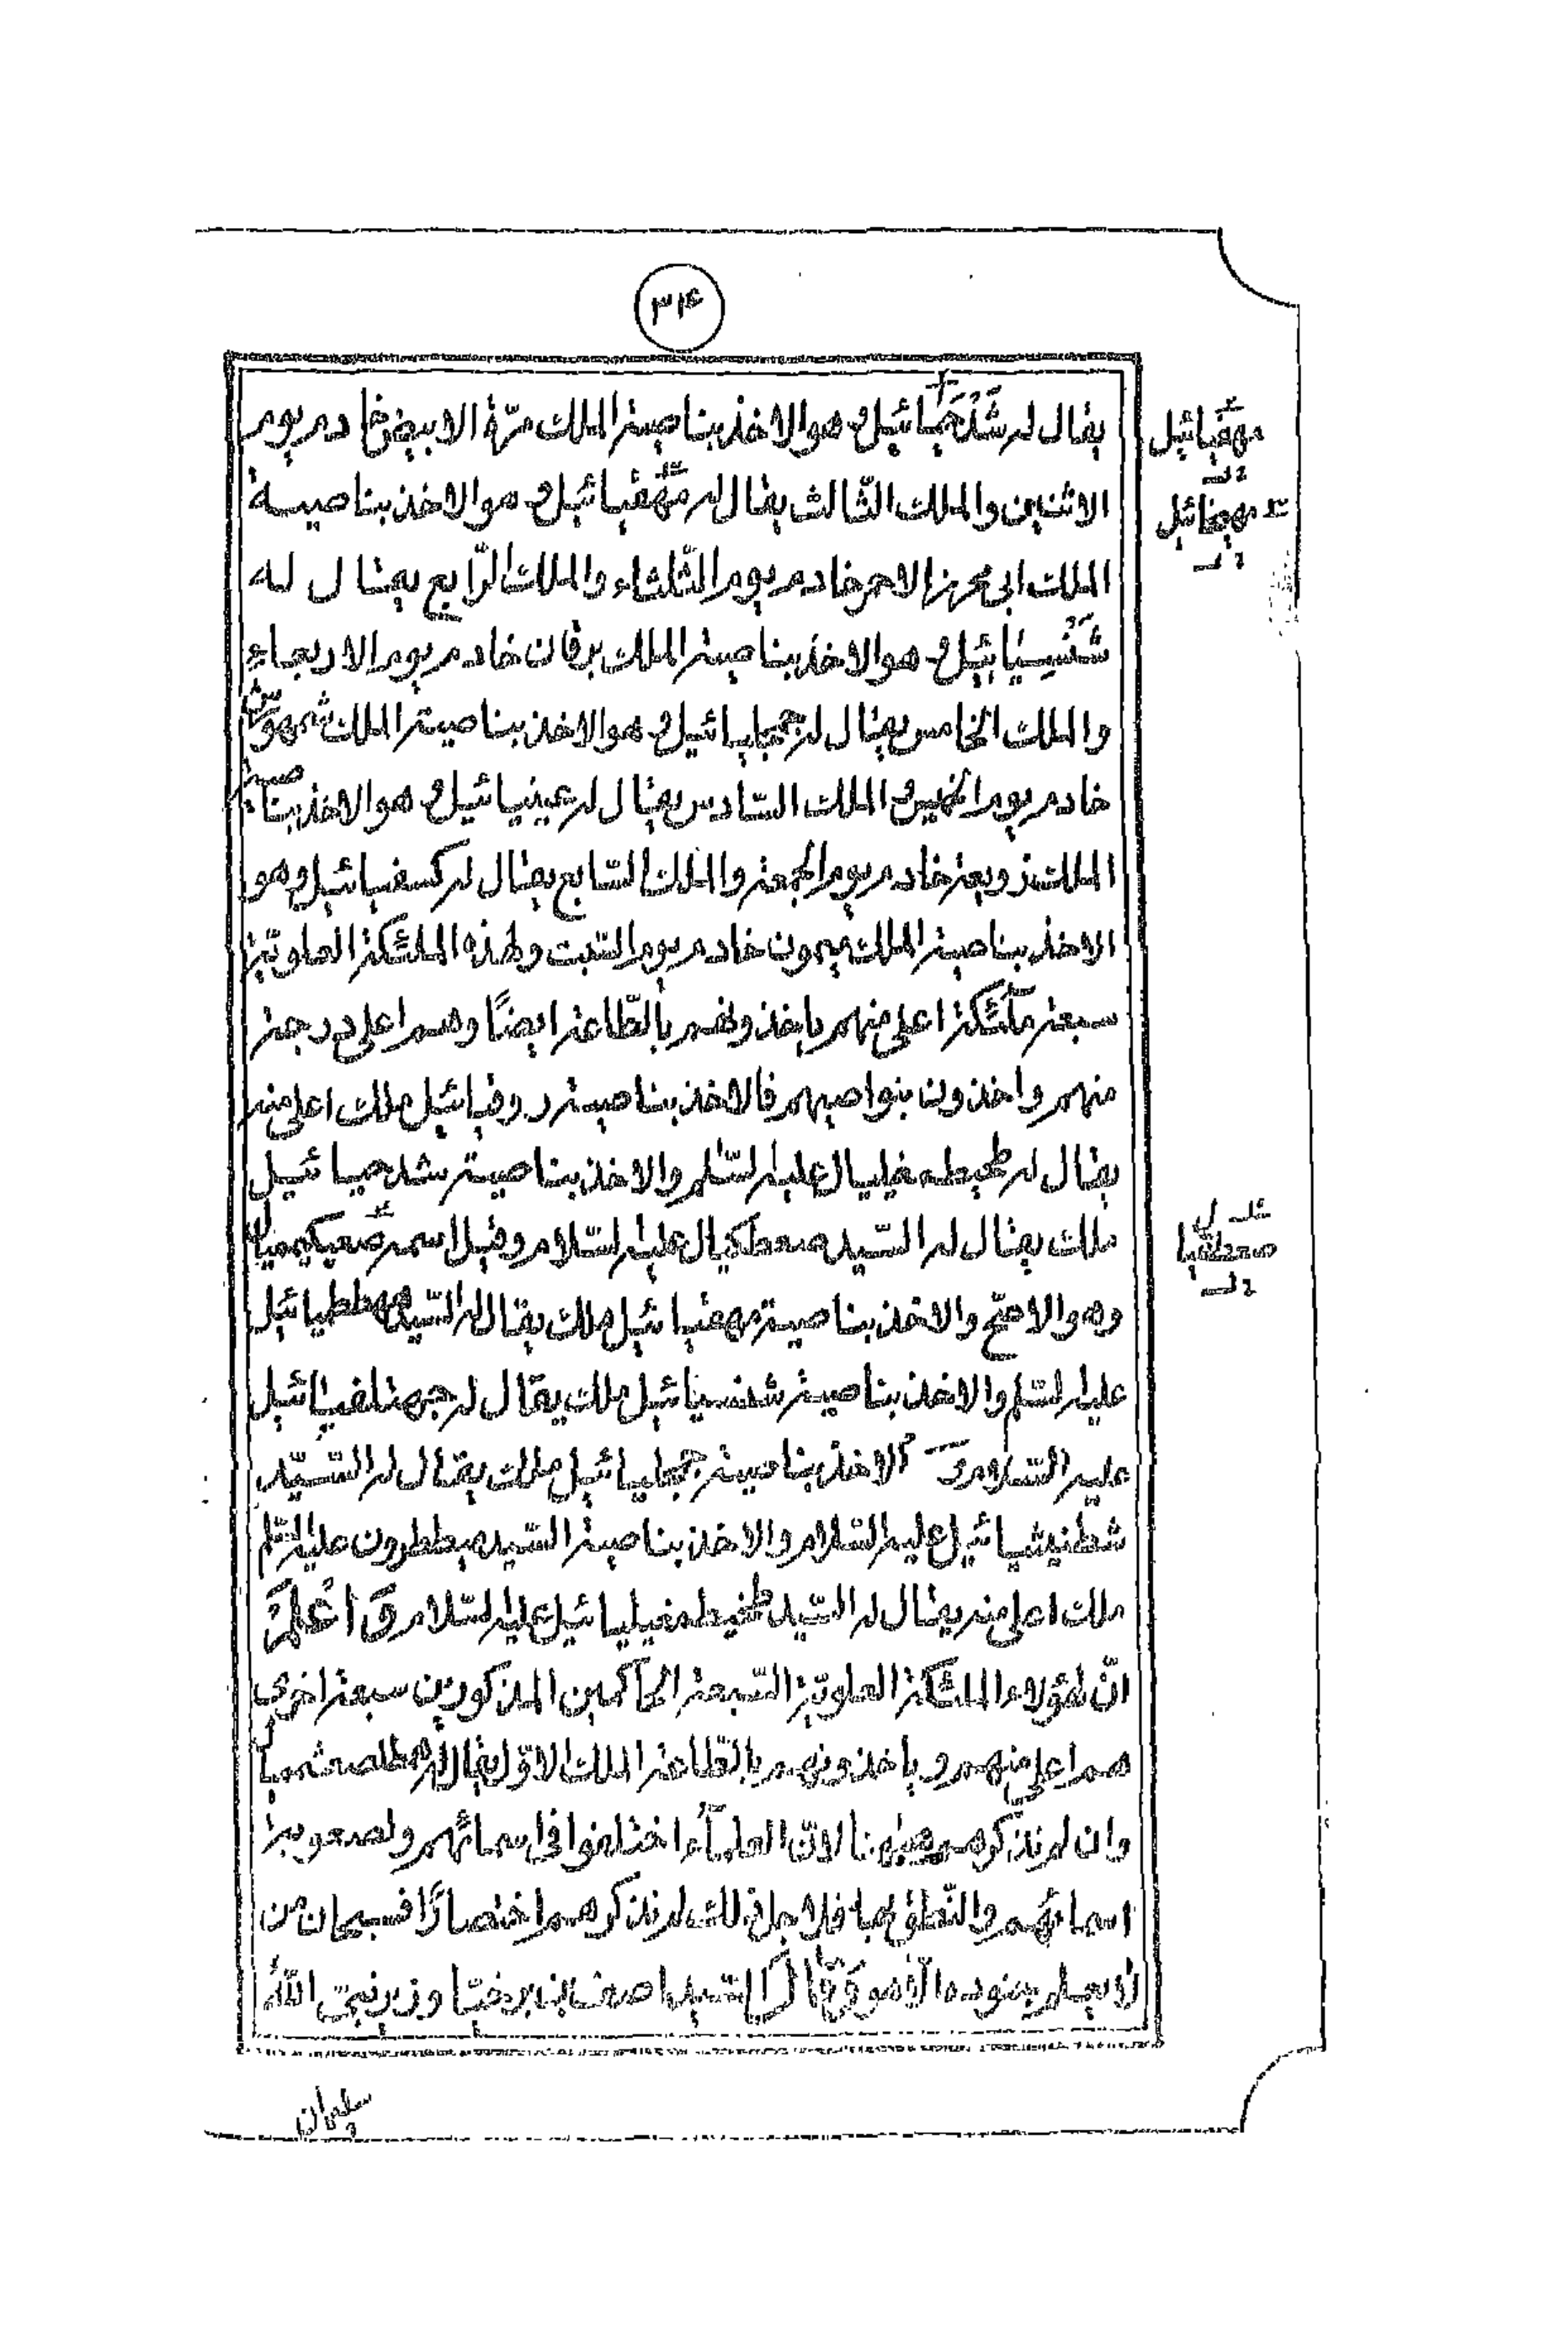 ۳۴
يقال له شَدْحَيَائيل وهو الاخذ بناصية الملك مرّة الابيض خادم يوم
الاثنين والملك الثّالث يقال له مَهْقَيائيل وهو الاخذ بناصية
الملك ابى محرز الاحمر خادم يوم الثّلثاء والملك الرّابع يقال له
شَنْسِيَائيل وهو الاخذ بناصية الملك برقان خادم يوم الاربعاء
والملك الخامس يقال له وهو الاخذ بناصية الملك شمهورش
خادم يوم الخميس والملك السّادس يقال له عينيائيل وهو الاخذ بناصية
الملك زوبعة خادم يوم الجمعة والملك السّابع يقال له كسفيائيل وهو
الاخذ بناصية الملك ميمون خادم يوم السّبت ولهذه الملئكة العلويّة
سبعة ملٓئكة اعلى منهم ياخذونهم بالطّاعة ايضًا وهم اعلى درجة
منهم واخذون بنواصيهم فالاخذ بناصية روقيائيل ملك اعلى منه
يقال له عليه السّلم والاخذ بناصية شدحيائيل
ملك يقال له السّيد صعطكيال عليه السّلام وقيل اسمه
وهو الاصحّ والاخذ بناصية مهقيائيل ملك يقال له السّيد مهططيائيل
عليه السّلم والاخذ بناصية شنسيائيل ملك يقال له
عليه السّلام وَ الاخذ بناصية ملك يقال له السّيّد
عليه السّلام والاخذ بناصية السّيد ميططرون عليه السّلم
ملك اعلى منه يقال له السّيد عليه السّلام وَاعْلَمْ
انّ لهؤلاء الملئكة العلويّة السّبعة الحآكمين المذكورين سبعة اخرى
هم اعلى منهم و ياخذونهم بالطّاعة الملك الاوّل يقال له
وان لم نذكرهم هيهنا لانّ العلمآء اختلفوا فى اسمائهم ولصعوبة
اسمائهم والنّطق بها فلاجل ذلك لم نذكرهم اختصارًا فسبحان من
لا يعلم جنوده الّا هو وَقَالَ السّيد اصف بن برخيّا وزير نبىّ اللّه
سليمان
مهقيائيل